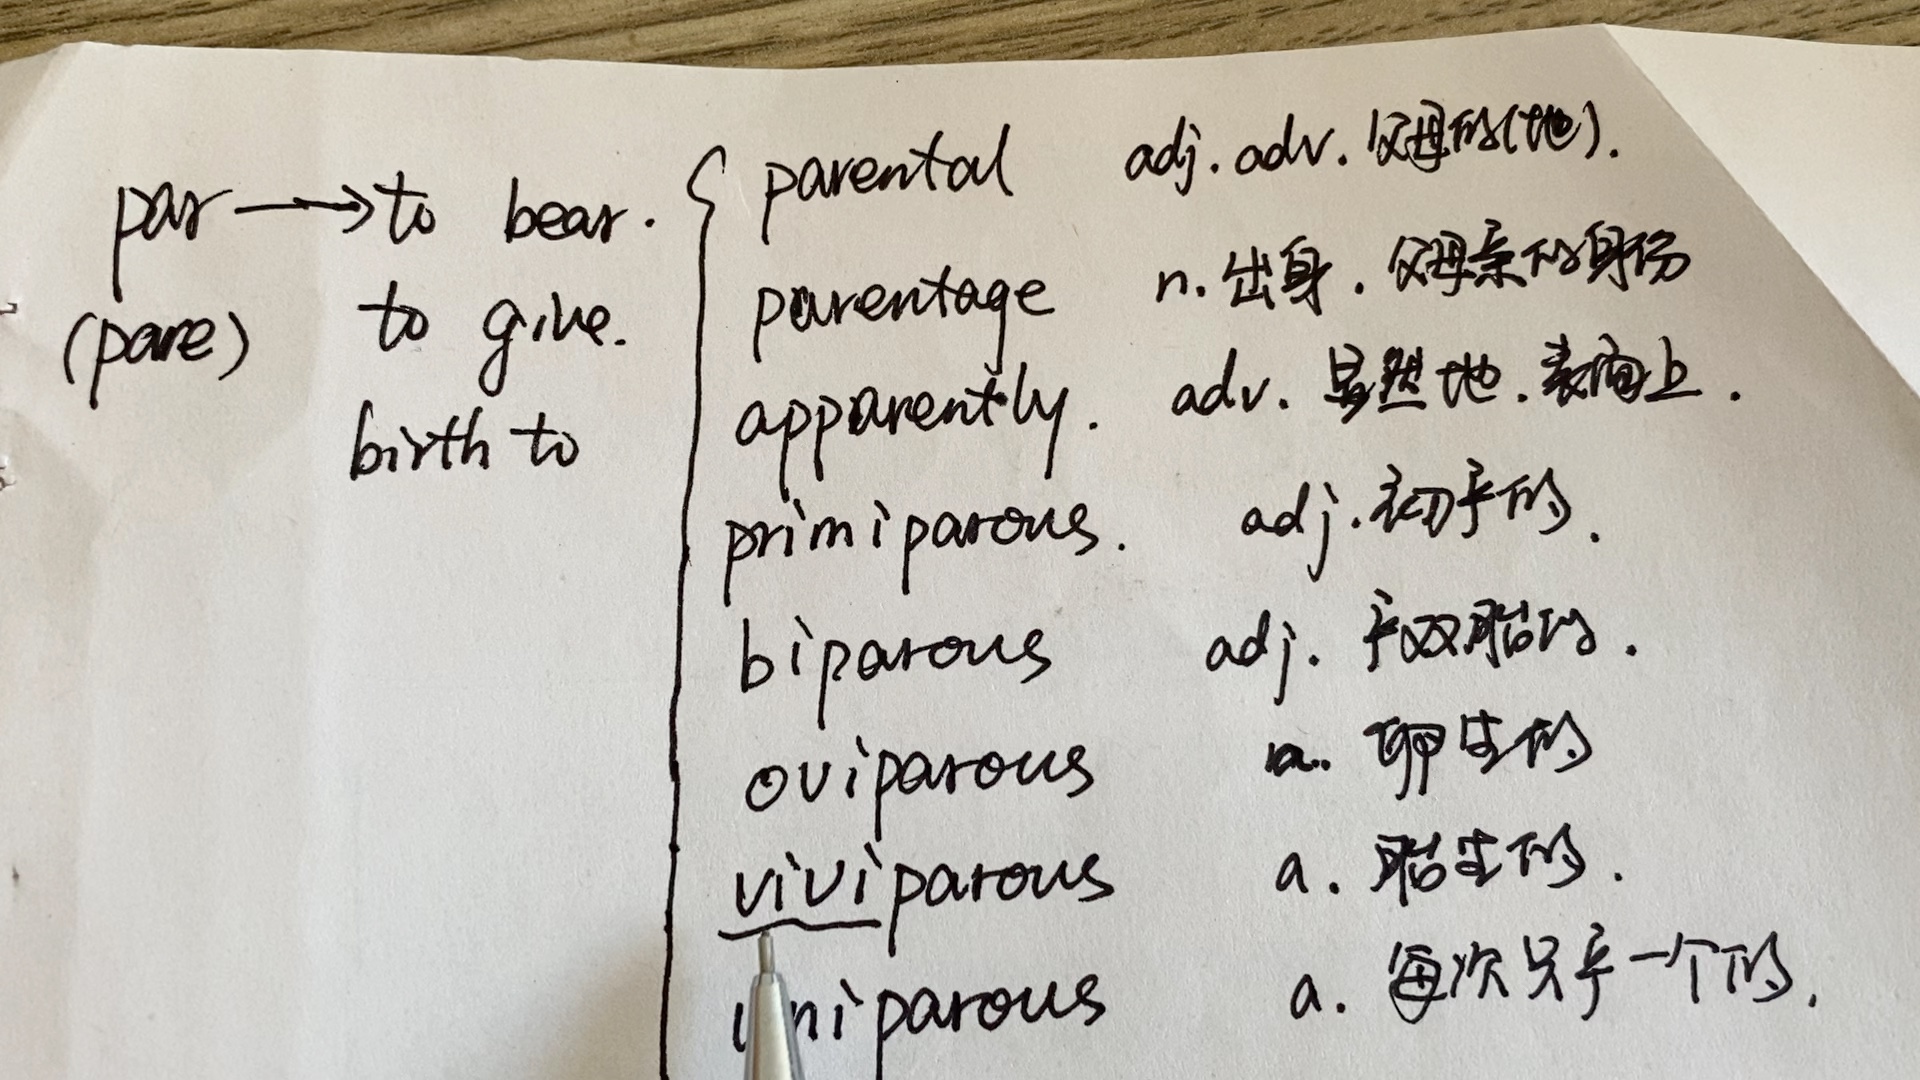 par → to bear.
(pare) to give.
birth to
parental adj. adv. 父母的(地).
parentage n. 出身. 父母亲的身份
apparently. adv. 显然地. 表面上.
primiparous. adj. 初产的.
biparous adj. 产双胎的.
oviparous a. 卵生的
viviparous a. 胎生的.
uniparous a. 每次只产一个的.